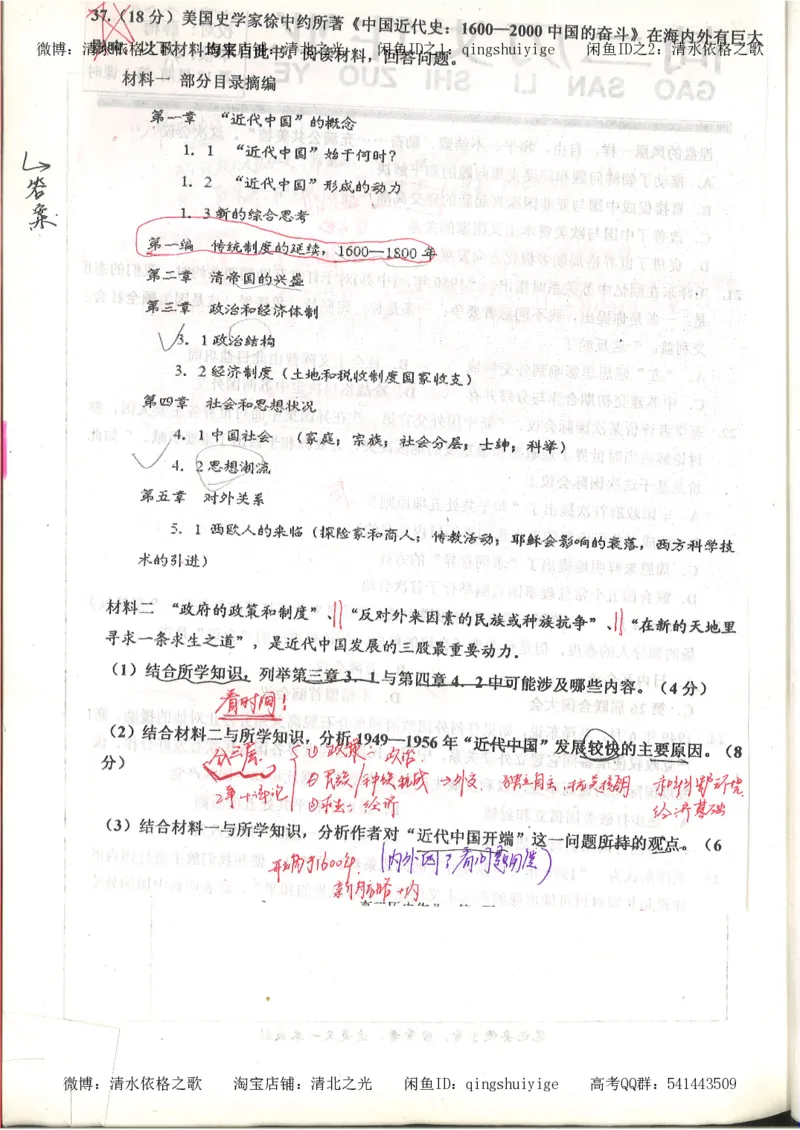 37.（18分）美国史学家徐中约所著《中国近代史：1600—2000中国的奋斗》在海内外有巨大
微博：清水依格之歌 淘宝店铺：清北之光 闲鱼ID之1：qingshuiyige 闲鱼ID之2：清水依格之歌
影响，以下材料均来自此书。阅读材料，回答问题。
材料一 部分目录摘编
第一章 “近代中国”的概念
1．1 “近代中国”始于何时？
1．2 “近代中国”形成的动力
1．3新的综合思考
→答案
第一编 传统制度的延续，1600—1800年
第二章 清帝国的兴盛
第三章 政治和经济体制
3．1政治结构
3．2经济制度（土地和税收制度国家收支）
第四章 社会和思想状况
4．1中国社会 （家庭；宗族；社会分层；士绅；科举）
4．2思想潮流
第五章 对外关系
5．1西欧人的来临（探险家和商人；传教活动；耶稣会影响的衰落，西方科学技
术的引进）
材料二 “政府的政策和制度”、“反对外来因素的民族或种族抗争”、“在新的天地里
寻求一条求生之道”，是近代中国发展的三股最重要动力．
（1）结合所学知识，列举第三章3．1与第四章4．2中可能涉及哪些内容。（4分）
看时间！
（2）结合材料二与所学知识，分析1949—1956年“近代中国”发展较快的主要原因。（8
分）
分三层
①政策：政治
②民族/种族抗成→外交
独立自主
经济基础
③求生：经济
（3）结合材料一与所学知识，分析作者对“近代中国开端”这一问题所持的观点。（6
开端于1600年
（内外因；看问题角度）
微博：清水依格之歌 淘宝店铺：清北之光 闲鱼ID：qingshuiyige 高考QQ群：541443509